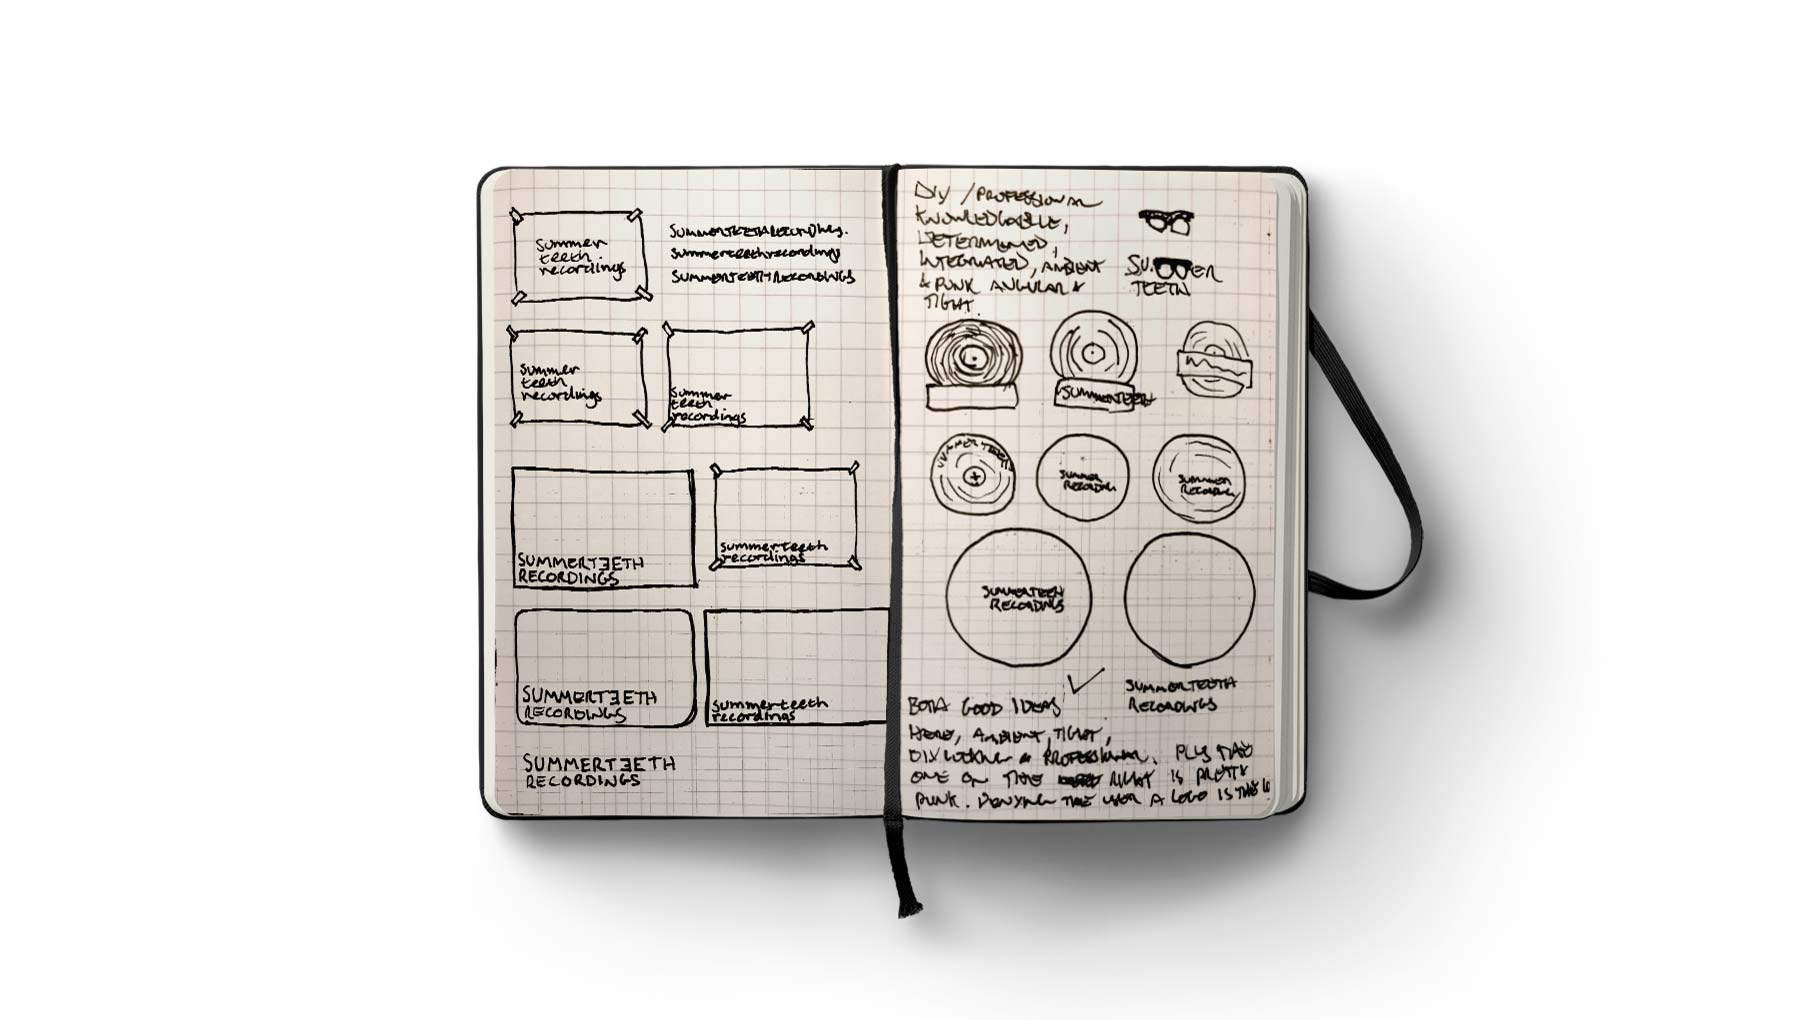 Summer
teeth
recordings
summerteethrecordings
SUMMERTEETHRECORDINGS
Summer
teeth
recordings
Summer
teeth
recordings
SUMMERTƎETH
RECORDINGS
Summerteeth
recordings
SUMMERTƎETH
RECORDINGS
Summerteeth
recordings
SUMMERTƎETH
RECORDINGS
DIY / PROFESSIONAL
KNOWLEDGABLE,
DETERMINED,
INTEGRATED, AMBIENT
& PUNK ANGULAR &
TIGHT.
SU ER
TEETH
SUMMERTEETH
SUMMER TEETH
SUMMER
RECORDING
SUMMER
RECORDING
SUMMERTEETH
RECORDINGS
SUMMERTEETH
RECORDINGS
BOTH GOOD IDEAS
HERE, AMBIENT, TIGHT,
DIY LOOKING & PROFESSIONAL. PLUS THE
ONE ON THE RIGHT IS PRETTY
PUNK. DENYING THE USER A LOGO IS